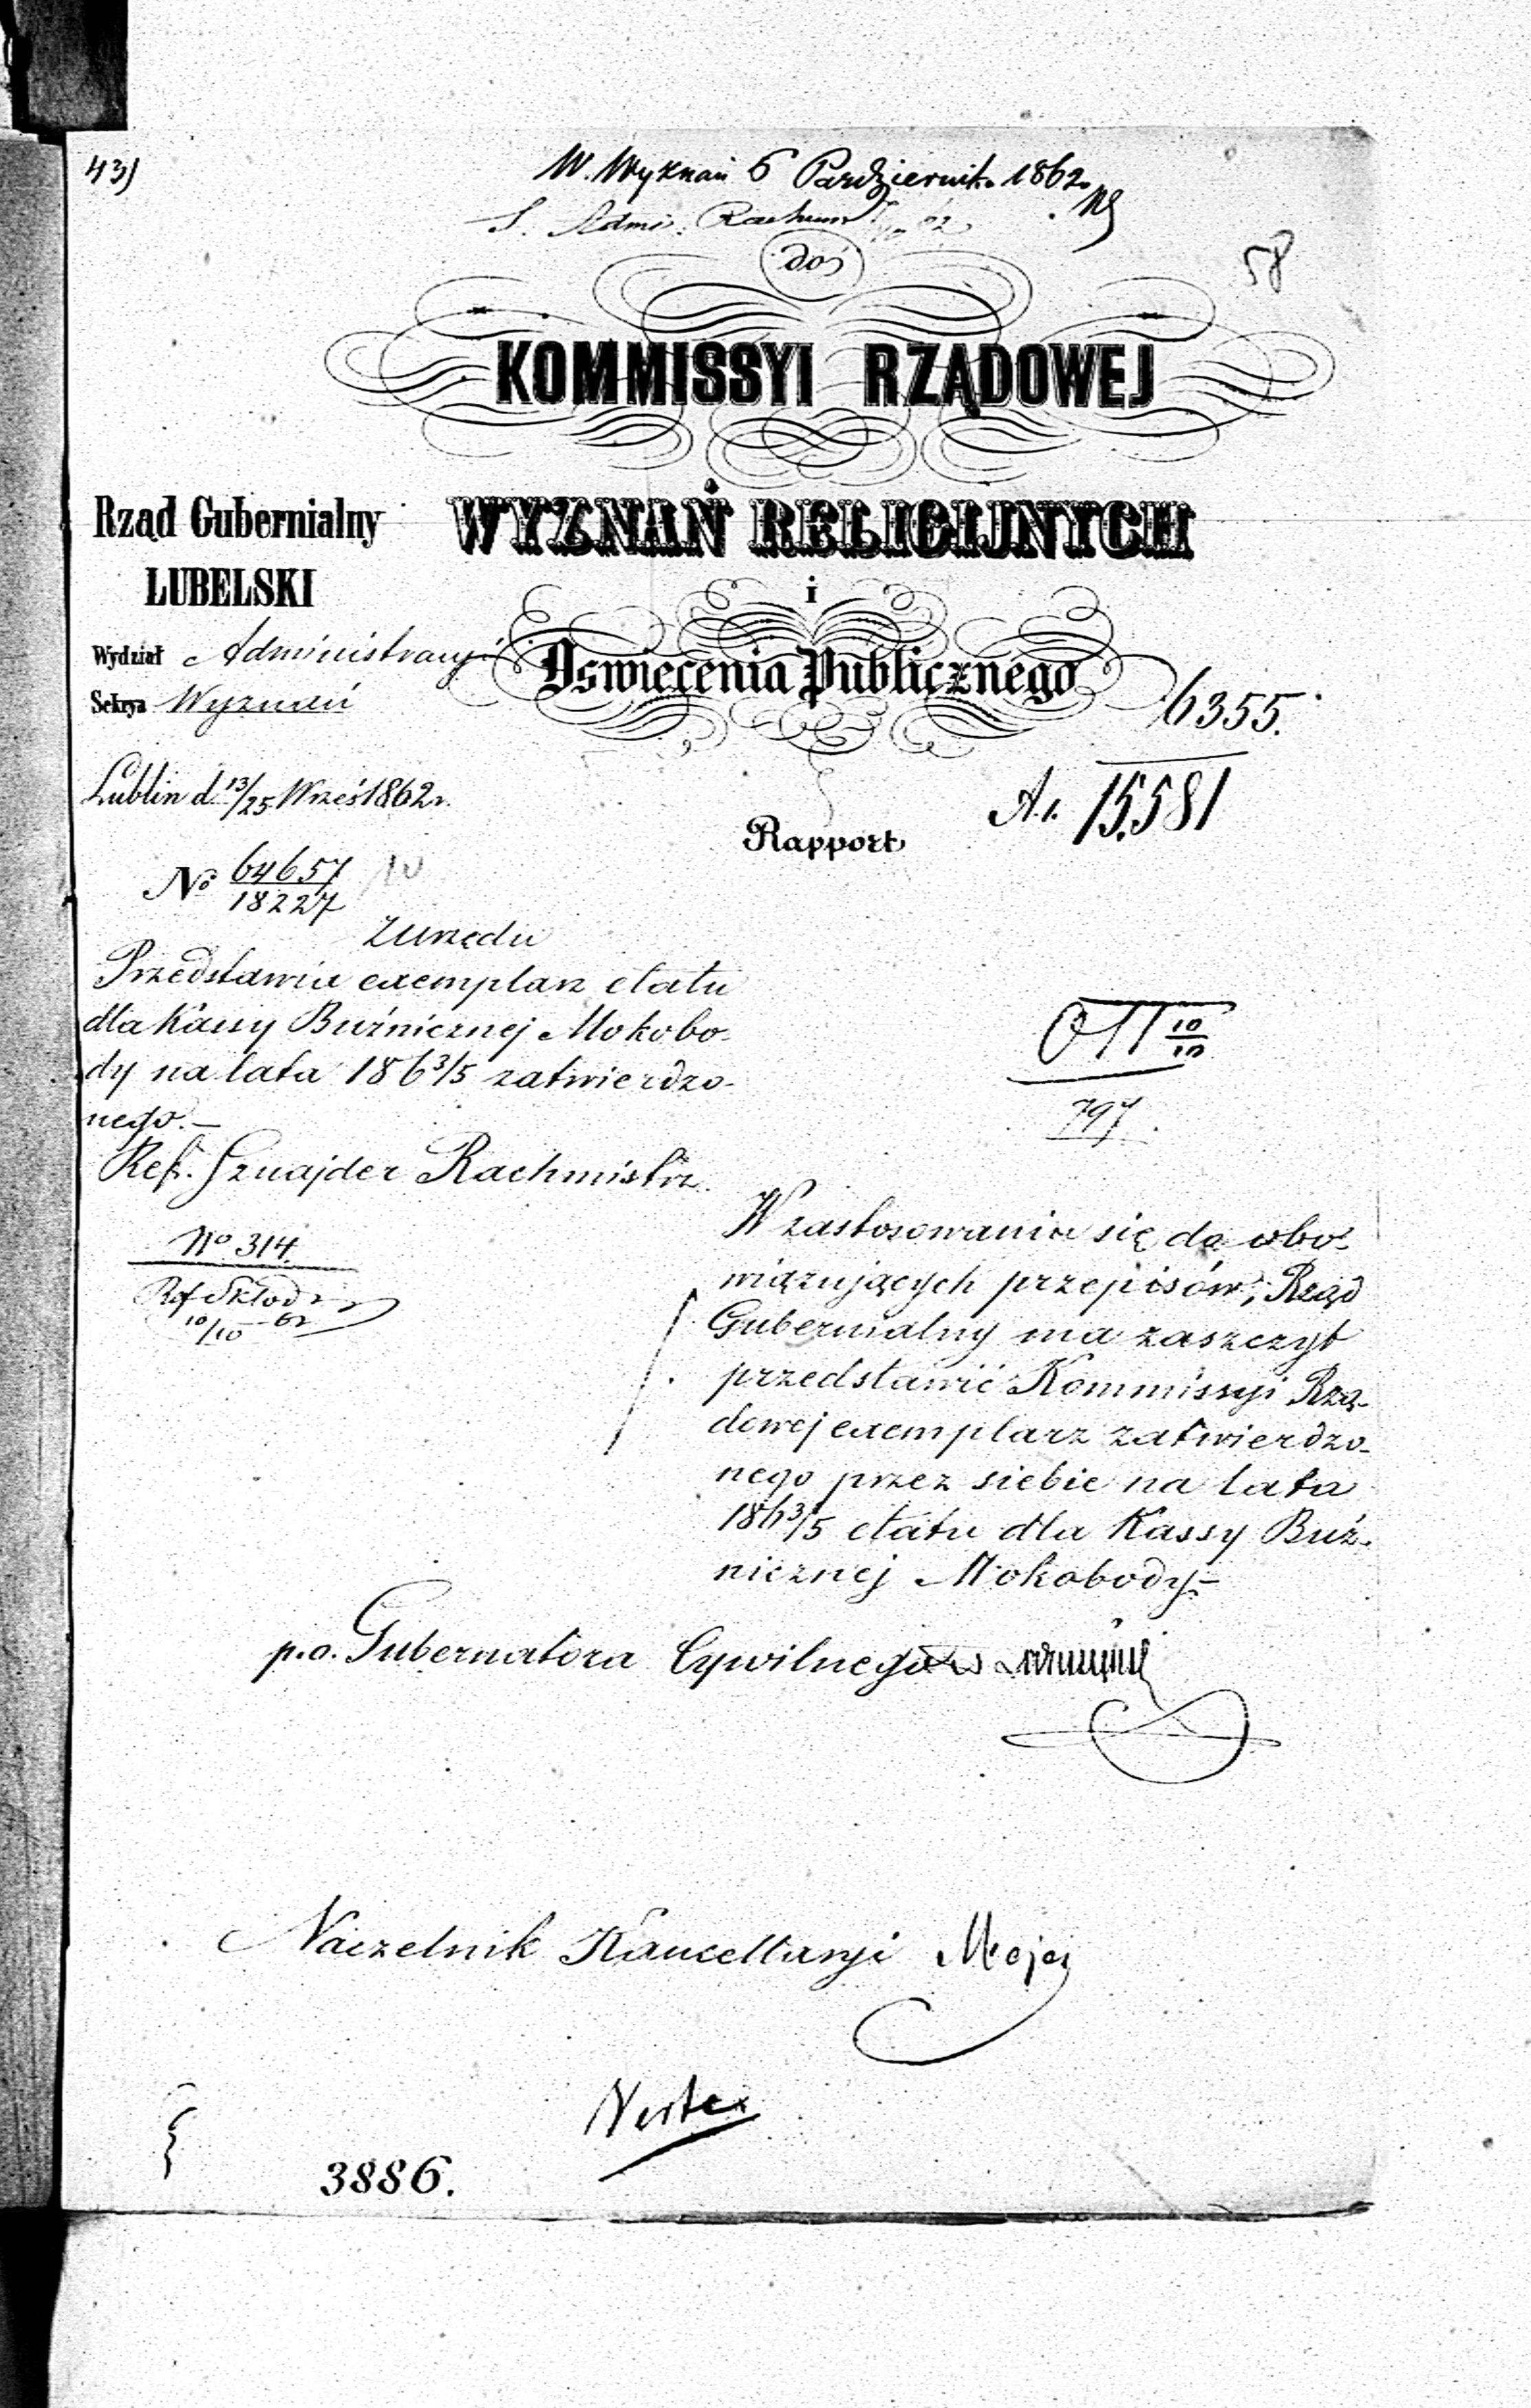 43)
W. Wyznań 6 Październik 1862
S. Admi. Rachun
do
58
KOMMISSYI RZĄDOWEJ
Rząd Gubernialny
LUBELSKI
WYZNAŃ RELIGIJNYCH
i
Oświecenia Publicznego
Wydział Administracyj
Sekcya Wyznań
6355.
Lublin d. 13/25 Wrześ 1862 r.
A.1. 15,581
Rapport
No 64657/18227
Z urzędu
Przedstawia exemplarz etatu
dla Kassy Buźnicznej Mokobo-
dy na lata 186 3/5 zatwierdzo-
nego.—
10/10
797
Ref. Sznajder Rachmistrz
No 314.
Ref
10/10 62
W zastosowaniu się do obo-
wiązujących przepisów, Rząd
Gubernialny ma zaszczyt
przedstawić Kommissyi Rzą-
dowej exemplarz zatwierdzo-
nego przez siebie na lata
186 3/5 etatu dla Kassy Buź-
nicznej Mokobody.—
p.o. Gubernatora Cywilnego
Naczelnik Kancellaryi
3886.